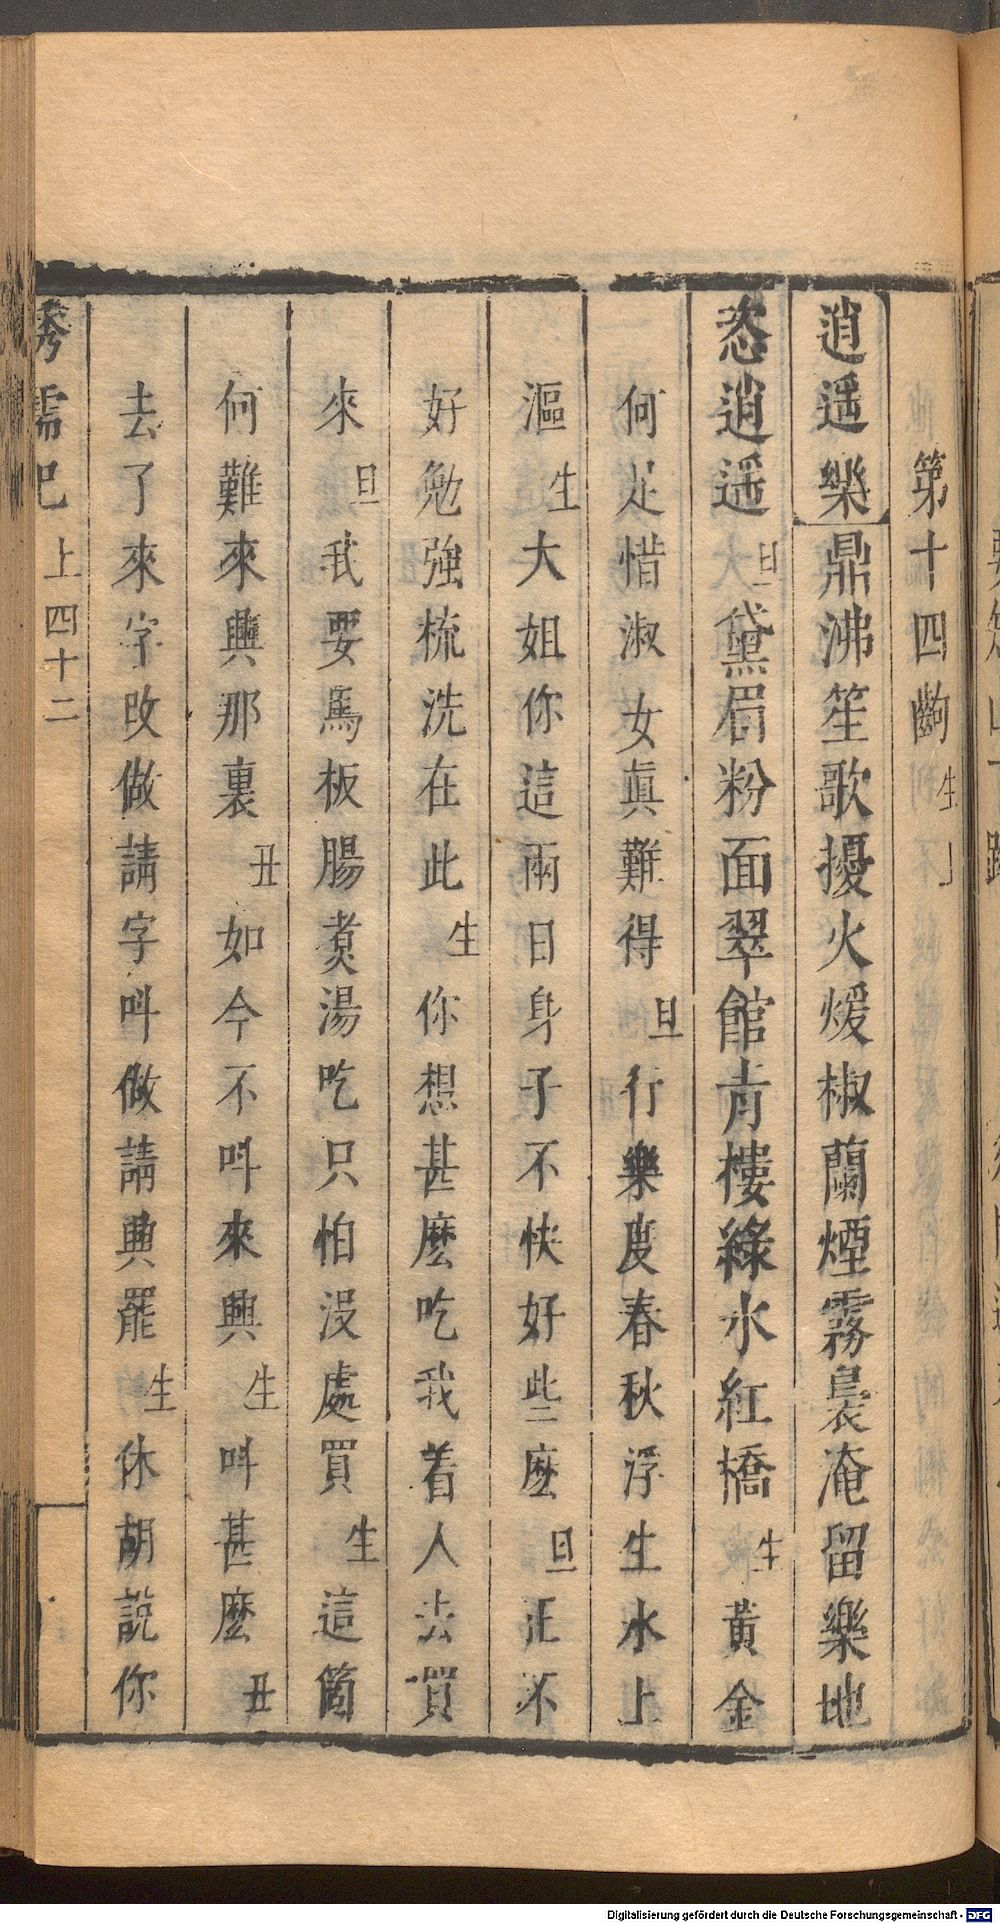 第十四齣生上
逍遥樂鼎沸笙歌擾火煖椒蘭煙霧裊淹留樂地
恣逍遥旦黛眉粉面翠館青樓綠水紅橋生黃金
何足惜淑女眞難得旦行樂度春秋浮生水上
漚生大姐你這兩日身子不快好些麽旦正不
好勉強梳洗在此生你想甚麽吃我着人去買
來旦我要馬板腸煑湯吃只怕没處買生這箇
何難來興那裏丑如今不呌來興生呌甚麽丑
去了來字改做請字呌做請興罷生休胡説你
綉襦記 上四十二
Digitalisierung gefördert durch die Deutsche Forschungsgemeinschaft - DFG